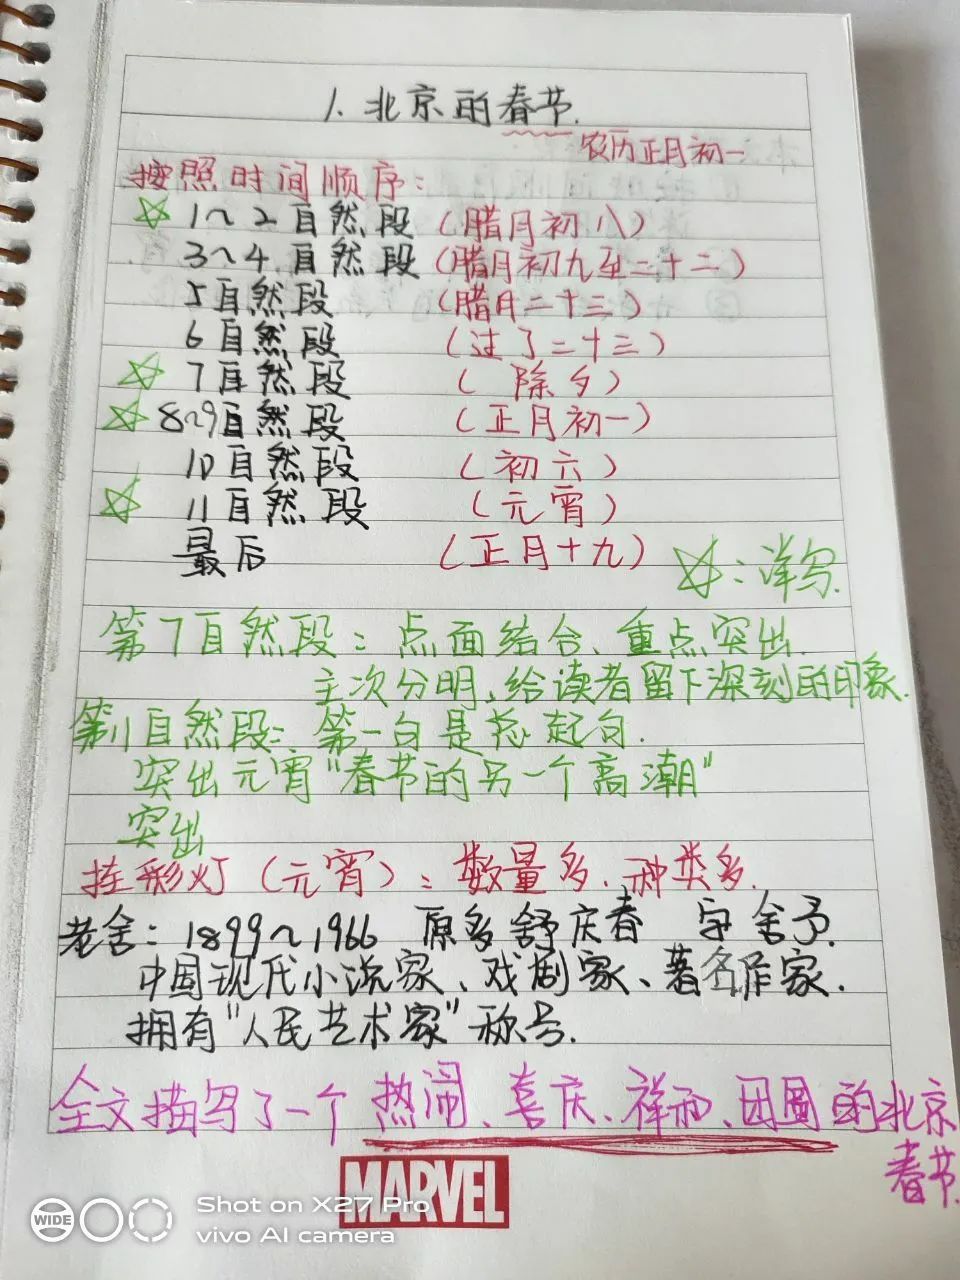 1.北京的春节.
农历正月初一
按照时间顺序:
☆ 1~2自然段 (腊月初八)
3~4自然段 (腊月初九至二十二)
5自然段 (腊月二十三)
6自然段 (过了二十三)
☆ 7自然段 (除夕)
☆ 8~9自然段 (正月初一)
10自然段 (初六)
☆ 11自然段 (元宵)
最后 (正月十九)
☆:详写.
第7自然段:点面结合、重点突出.
主次分明,给读者留下深刻的印象.
第11自然段:第一句是总起句.
突出元宵"春节的另一个高潮"
突出
挂彩灯(元宵):数量多、种类多.
老舍:1899~1966 原名舒庆春 字舍予.
中国现代小说家、戏剧家、著名作家.
拥有"人民艺术家"称号.
全文描写了一个热闹、喜庆、祥和、团圆的北京
春节.
MARVEL
WIDE
Shot on X27 Pro
vivo AI camera